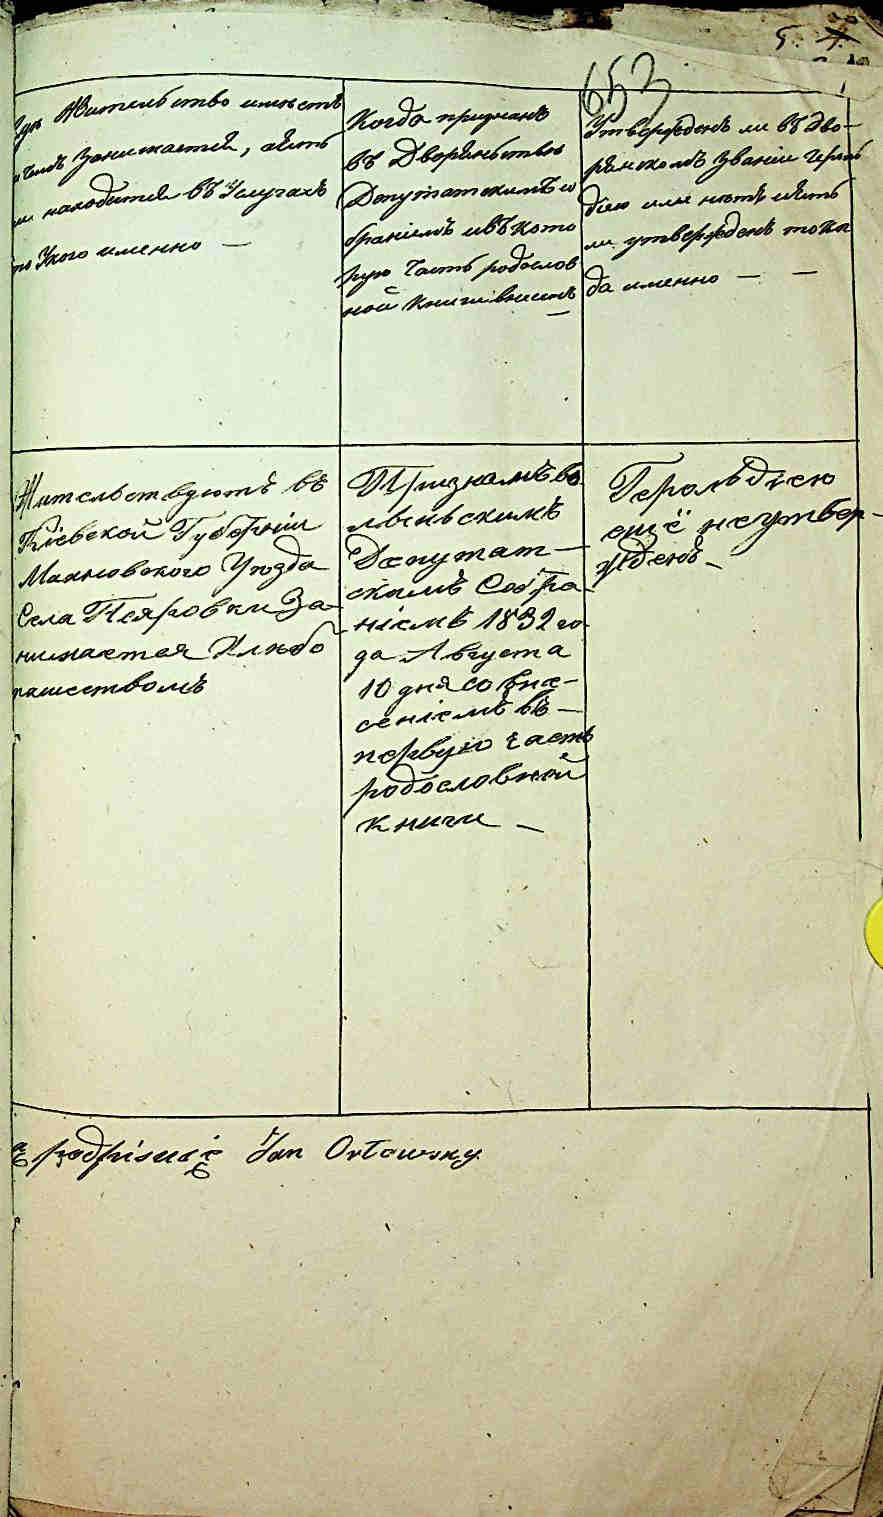 653
5
Жительство имѣетъ
чемъ занимается,
находится въ Услугахъ
Укого именно —
Когда признанъ
въ Дворянствѣ
Депутатскимъ со
браніемъ ивъ кото
рую Часть родослов
ной книги внесенъ —
Утвержденъ ли въ Дво-
рянскомъ званіи Героль
діею или нѣтъ
ли утвержденъ то ко
да именно — —
Жительствуютъ въ
Кіевской Губерніи
Махновского Уезда
Села Пеяровки За-
нимается Хлебо
пашествомъ
Признанъ во
лынскимъ
Депутат-
скимъ Собра
ніемъ 1832 го
да Августа
10 дня со вне-
сеніемъ въ —
первую часть
родословной
книги —
Герольдіею
ещё неутвер-
жденъ —
podpisuię Jan Orłowsky